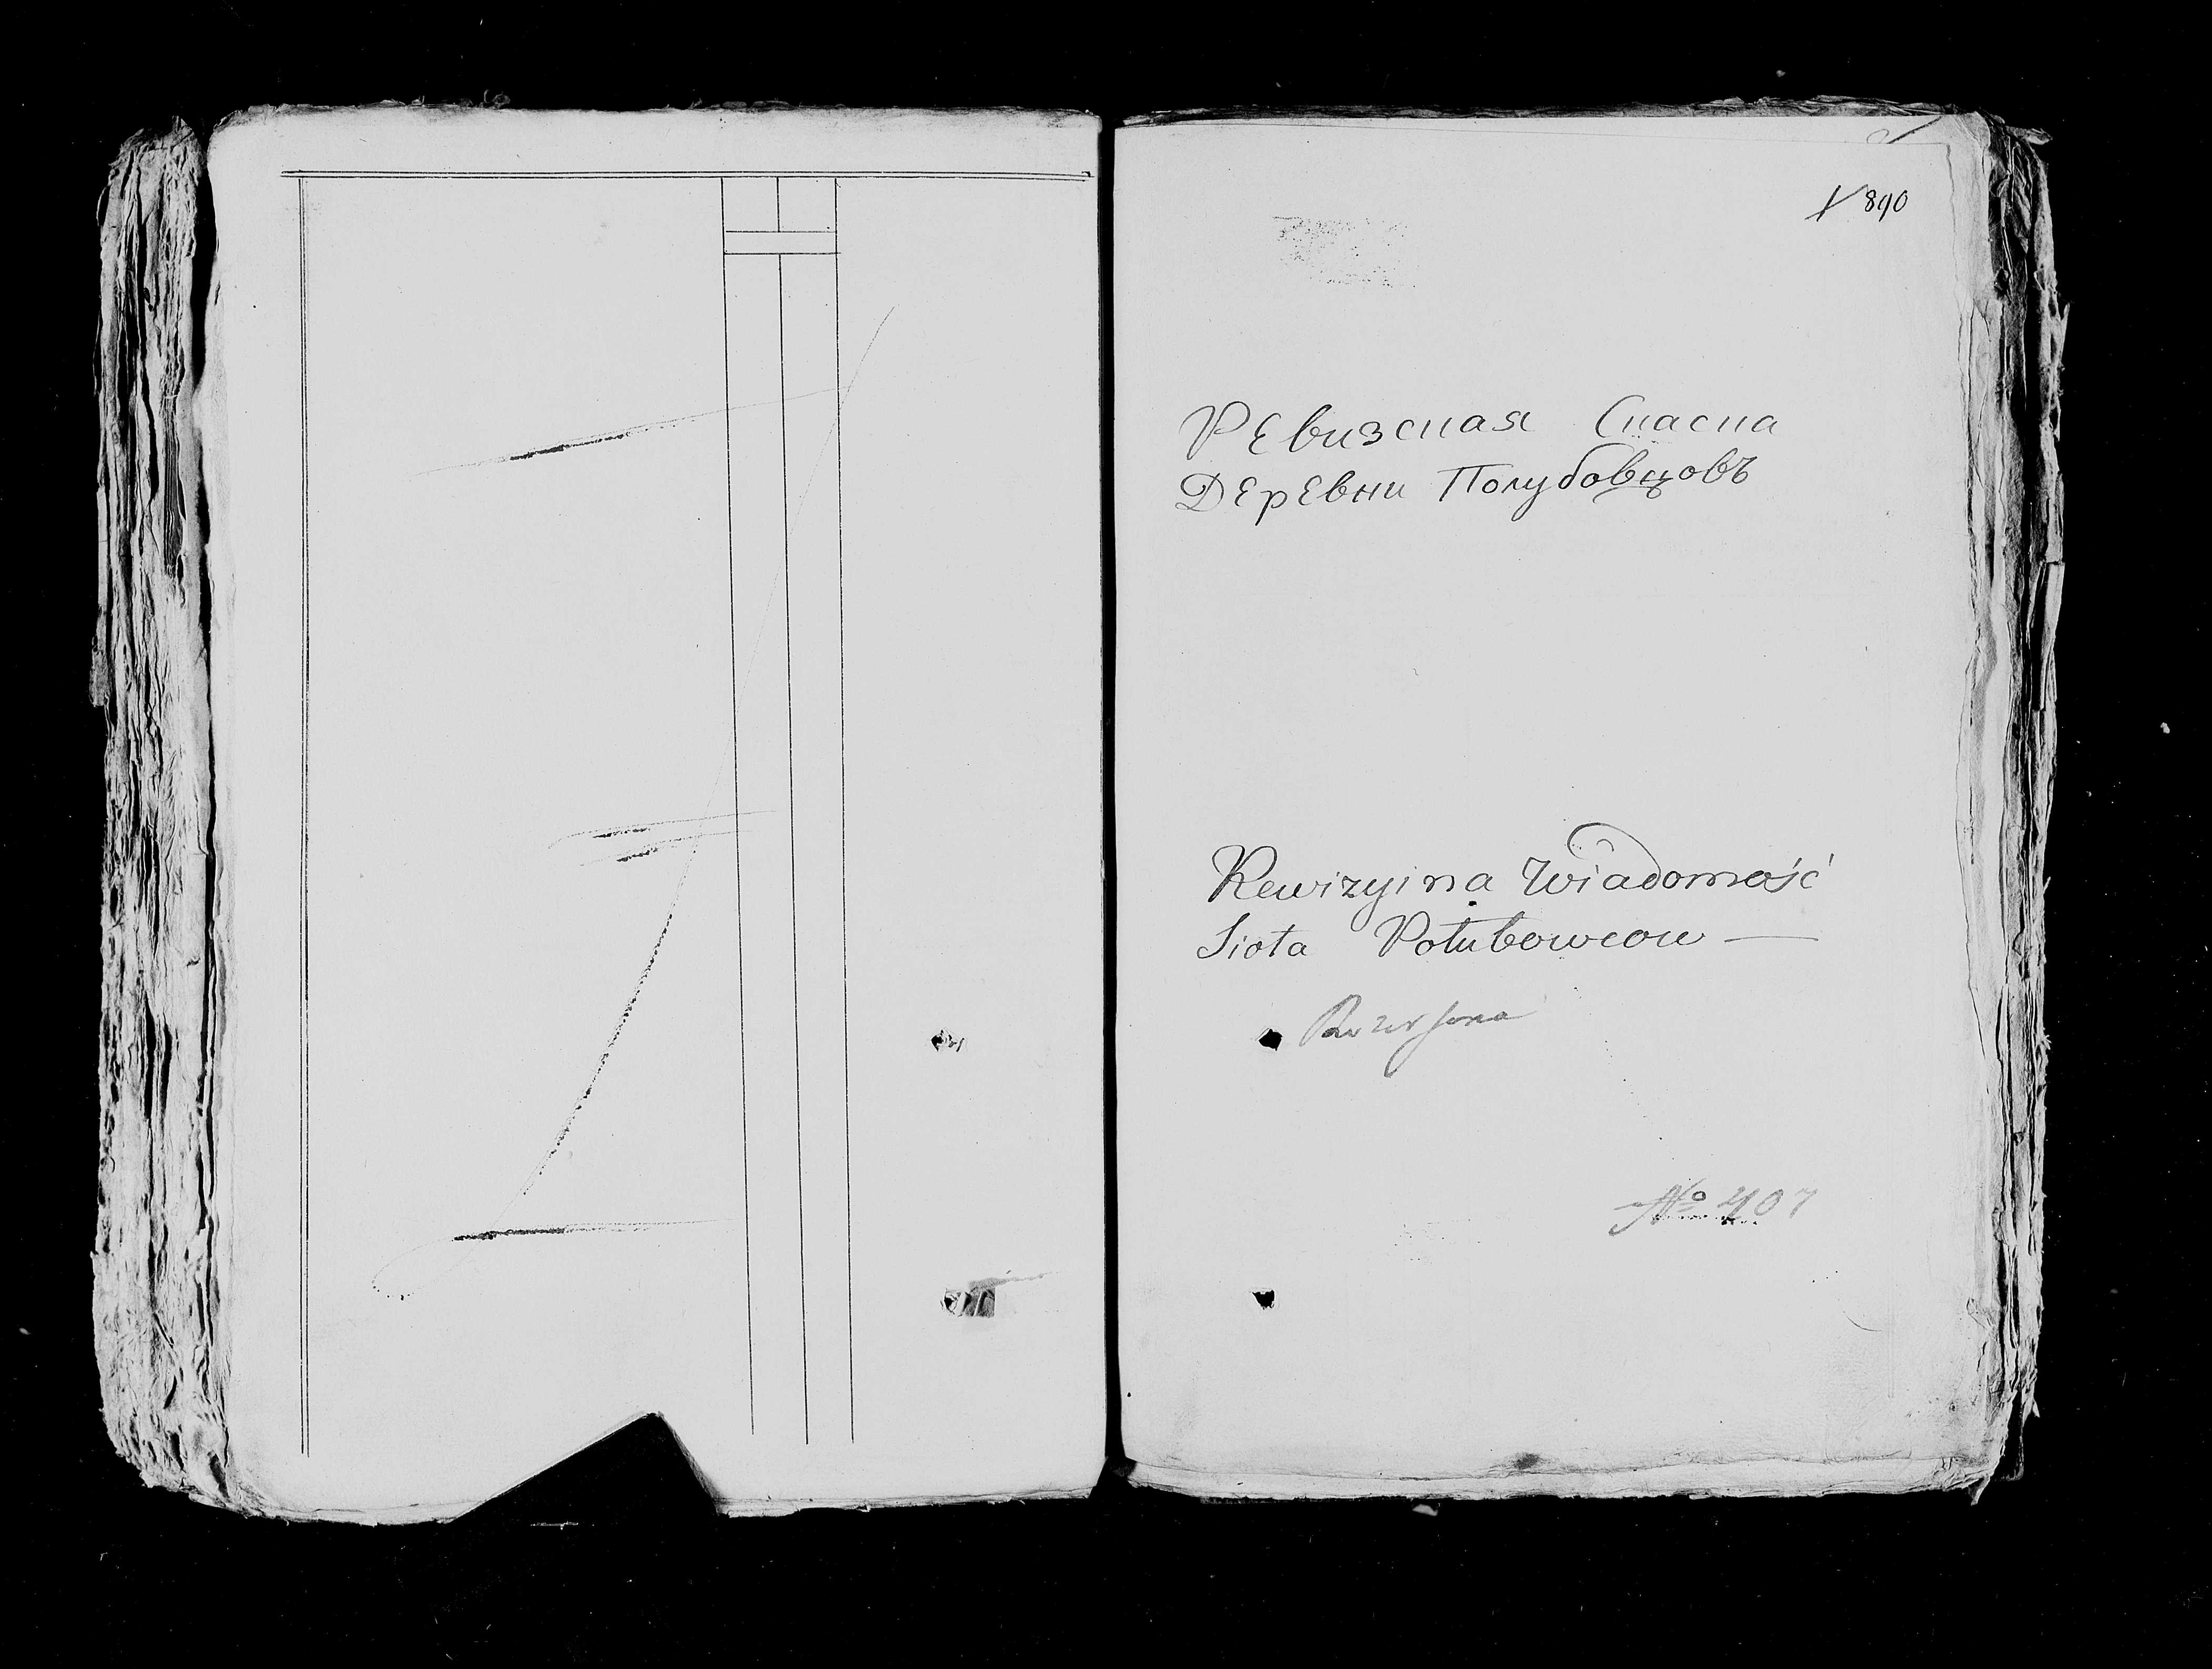 890
РЕвизсная Спасиа
ДЕрЕвни Полубовцовъ
Rewizyina Wiadomość
Sioła Połubowcow —
№ 407